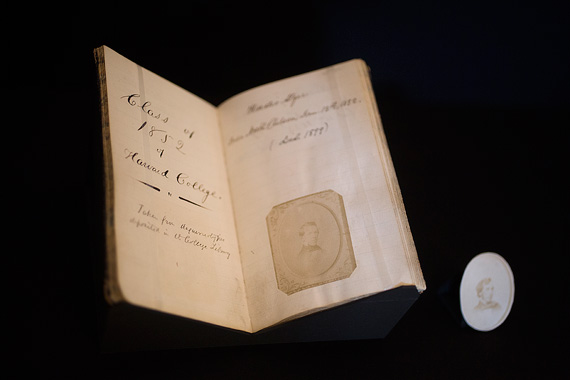 Class of
1852
of
Harvard College.
Taken from daguerreotypes
deposited in the College Library
Horatio Alger
(died 1899)